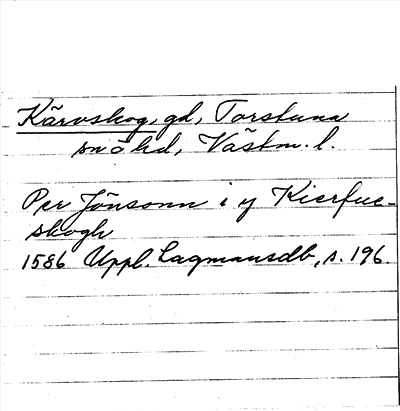 Kärvskog, gd, Torstuna
sn o hd, Västm. l.
Per Jönsonn i y Kierfue-
skogh
1586 Uppl. Lagmansdb, s. 196